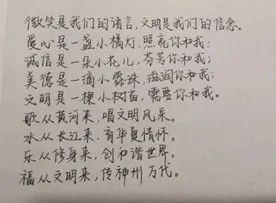 微笑是我们的语言,文明是我们的信念。
爱心是一盏小橘灯,照亮你和我;
诚信是一朵小花儿,芬芳你和我;
美德是一滴小露珠,滋润你和我;
文明是一棵小树苗,需要你和我。
歌从黄河来,唱文明风采。
水从长江来,育华夏情怀。
乐从修身来,创和谐世界。
福从文明来,传神州万代。